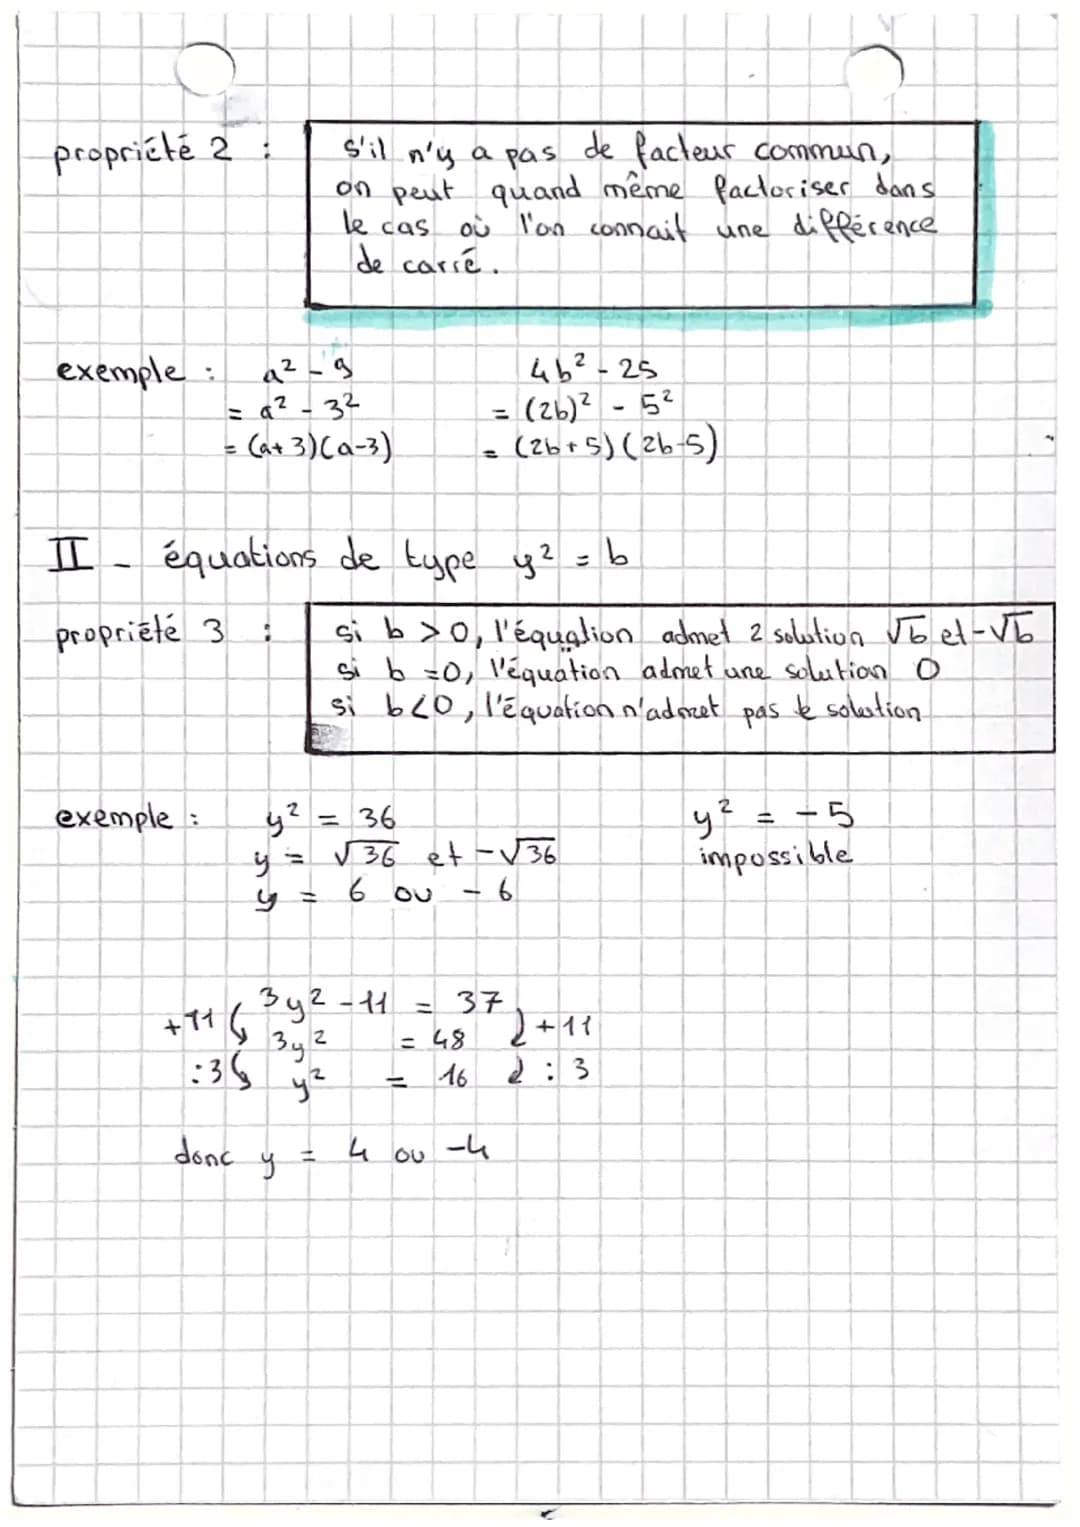 propriété 2 : s'il n'y a pas de facteur commun,
on peut quand même factoriser dans
le cas où l'on connait une différence
de carré.
exemple : a² - 9
= a² - 3²
= (a+3)(a-3)
4b² - 25
= (2b)² - 5²
= (2b+5)(2b-5)
II - équations de type y² = b
propriété 3 : si b > 0, l'équation admet 2 solution √b et -√b
si b = 0, l'équation admet une solution 0
si b < 0, l'équation n'admet pas de solution
exemple : y² = 36
y = √36 et -√36
y = 6 ou - 6
y² = -5
impossible
+11 3y² - 11 = 37 +11
3y² = 48
:3 y² = 16 : 3
donc y = 4 ou -4